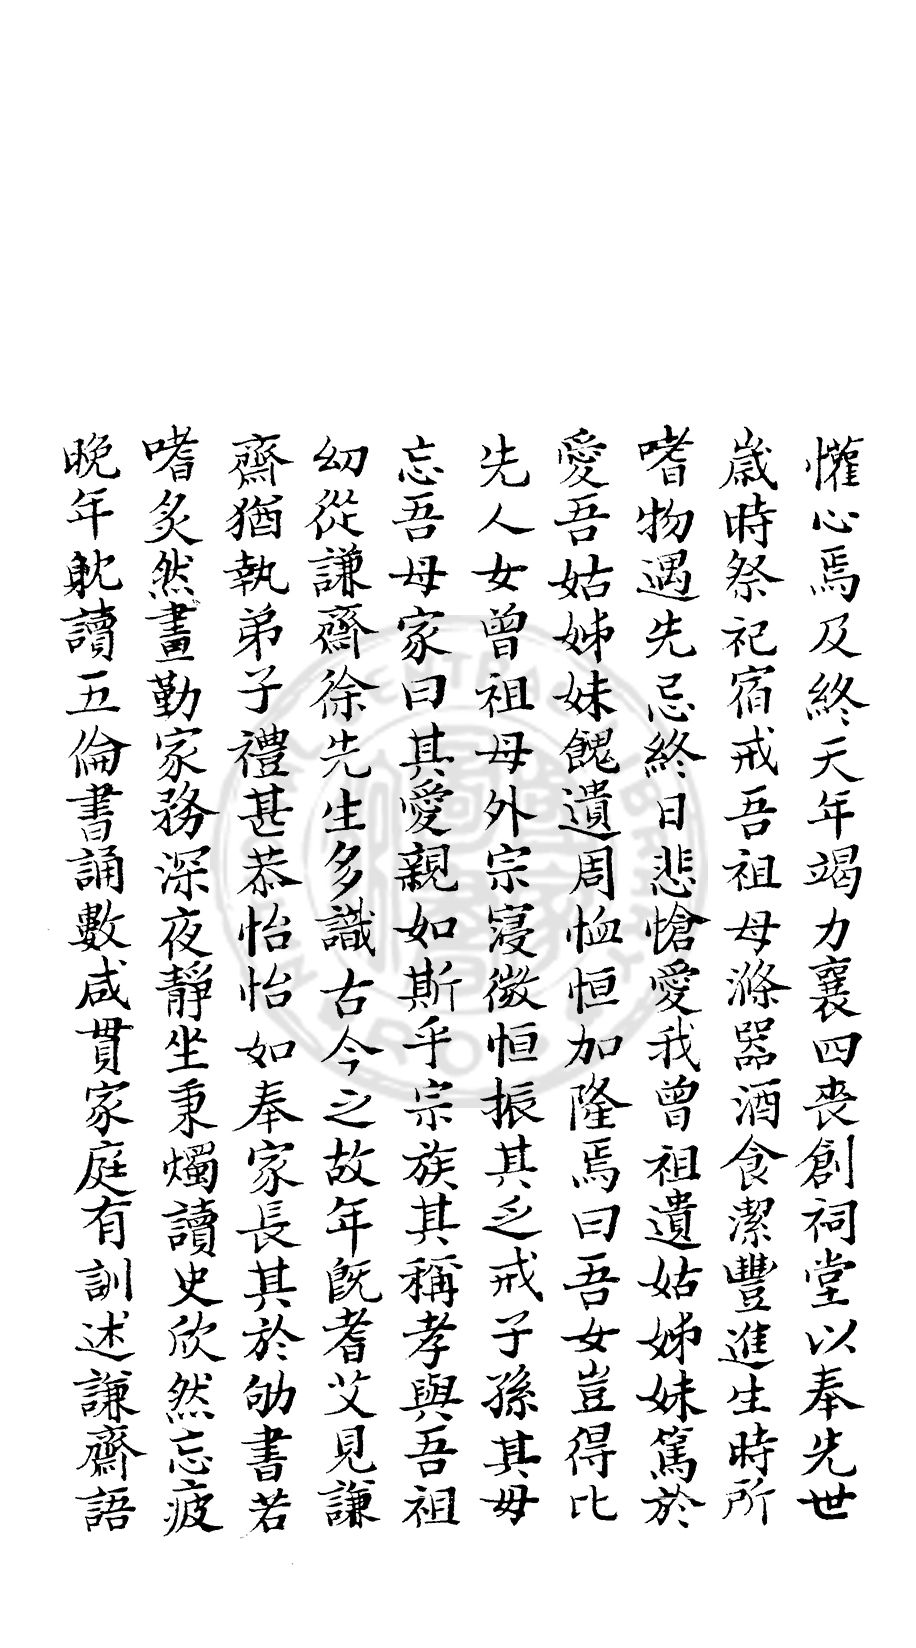 懽心焉及終天年竭力襄四喪創祠堂以奉先世
歲時祭祀宿戒吾祖母滌器酒食潔豐進生時所
嗜物遇先忌終日悲愴愛我曾祖遺姑姊妹篤於
愛吾姑姊妹餽遺周恤恒加隆焉曰吾女豈得比
先人女曾祖母外宗寖微恒振其乏戒子孫其毋
忘吾母家曰其愛親如斯乎宗族其稱孝與吾祖
幼從謙齋徐先生多識古今之故年旣耆艾見謙
齋猶執弟子禮甚恭怡怡如奉家長其於劬書若
嗜炙然晝勤家務深夜靜坐秉燭讀史欣然忘疲
晚年躭讀五倫書誦數咸貫家庭有訓述謙齋語